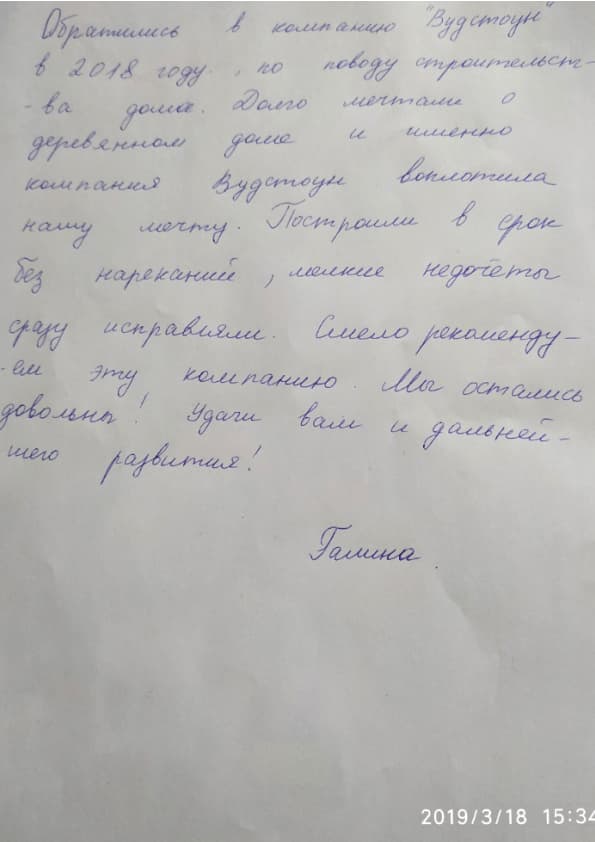 Обратились в компанию "Вудстоун"
в 2018 году, по поводу строительст-
-ва дома. Долго мечтали о
деревянном доме и именно
компания Вудстоун воплотила
нашу мечту. Построили в срок
без нареканий, мелкие недочёты
сразу исправляли. Смело рекоменду-
-ем эту компанию. Мы остались
довольны! Удачи вам и дальней-
шего развития!
Галина.
2019/3/18 15:34